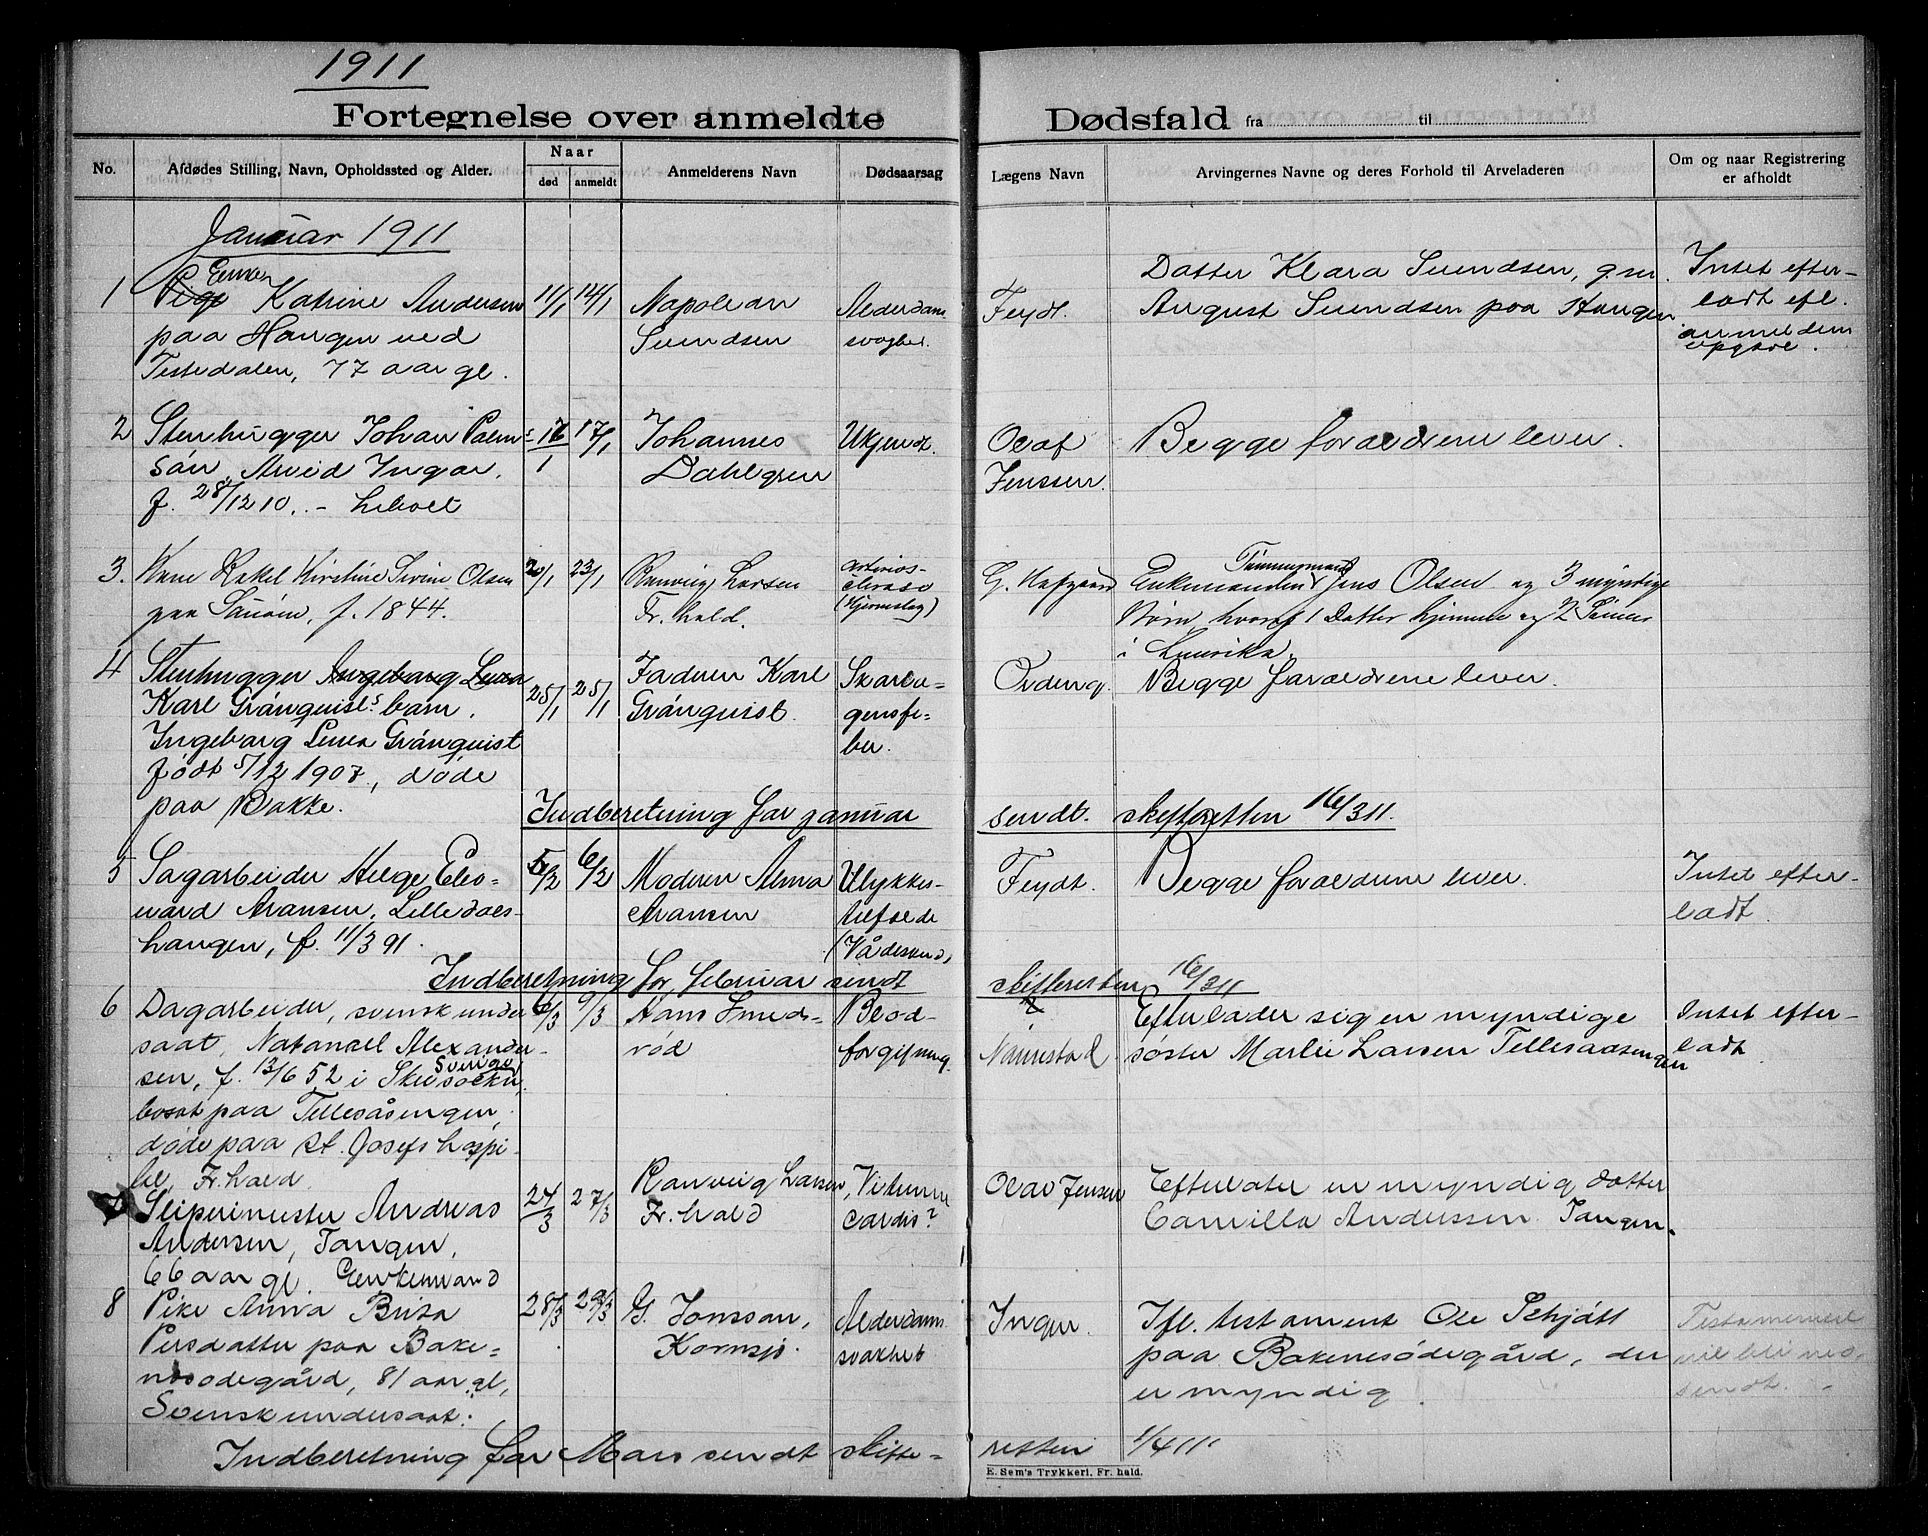 1911
Fortegnelse over anmeldte Dødsfald fra til
No.
Afdødes Stilling, Navn, Opholdssted og Alder.
Naar
død
anmeldt
Anmelderens Navn
Dødsaarsag
Lægens Navn
Arvingernes Navne og deres Forhold til Arveladeren
Om og naar Registrering
er afholdt
Januar 1911
1
Enke
Pige Katrine Andersen
paa Haugen ved
Tistedalen, 77 aar gl.
11/1
14/1
Napolean
Svendsen
Alderdom
svaghet.
Feydt.
Datter Klara Svendsen, gm.
August Svendsen paa Haugen
Intet efter-
ladt efl.
anmeldern
opgave.
2
Stenhugger Johan Palm
søn, Arvid Ingar,
f. 28/12 10. -
17/1
Johannes
Dahlgren
Ukjendt.
Olaf
Jenssen.
Begge forældrene lever.
3.
Kone Rakel Kirstine Olsen
f. 1844.
23/1
Ranveig Larsen
Fr. hald.
(Hjerneslag)
Enkemanden Tømmermand Jens Olsen og 3 myndige
Børn, hvoraf 1 Datter hjemme og 2 Sønner
i
4
Stenhugger Ingeborg
Karl Gránquist's barn,
Ingeborg Gránquist
født 5/12 1907, døde
paa Bakke.
25/1
25/1
Faderen Karl
Gránquist.
Skarla-
gensfe-
ber.
Begge forældrene lever.
Indberetning for januar sendt. skifteretten 16/3 11.
5
Sagarbeider Helge Edv-
vard Aransen, Lilledals-
haugen, f. 11/3 91.
5/2
6/2
Moderen Anna
Aransen
Ulykkes-
tilfælde
(Vådeskud)
Feydt.
Begge forældrene lever.
Intet efter-
ladt.
Indberetning for februar sendt skifteretten 16/3 11
6
Dagarbeider, svensk under
saat, Natanael Alexander-
sen, f. 13/6 52 i
Sverige
bosat paa Tellesåsengen,
døde paa St. Josefs hospi-
tal, Fr. hald.
6/3
9/3
Hans Smeds-
rød
Blod-
forgiftning.
Nannestad
Efterlader sig en myndige
søster Marlie Larsen Tellesaasengen
Intet efter-
ladt
7
Sliperimester Andreas
Andersen, Tangen,
66 aar gl. Enkemand
24/3
27/3
Ranveig Larsen,
Fr. hald
cordis?
Olav Jensen
Efterlater en myndig datter
Camilla Anderssen Tangen.
8
Pike Anna Brita
Persdatter paa Bake-
nesødegård, 81 aar gl,
Svensk undersaat.
28/3
29/3
G. Jonsson,
Kornsjø.
Alderdoms
svakhet
Inger.
Ifl. testament Ole Schjött
paa Bakenesødegård, der
er myndig
Testamentet
vil bli ned-
sendt.
Indberetning for Mars sendt skifte-
retten 1/4 11
E. Sem's Trykkeri, Fr. hald.